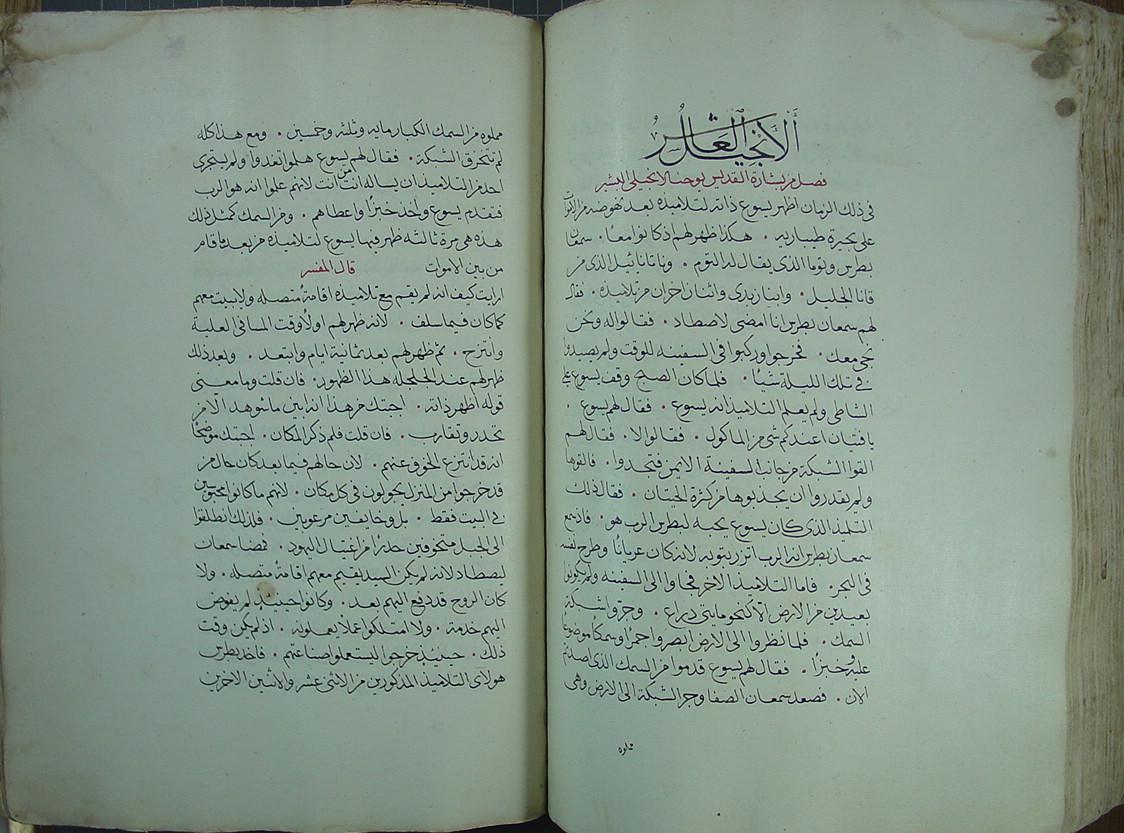 الانجيل العاشر
فصل من بشارة القديس يوحنا الانجيلى البشير
فى ذلك الزمان اظهر يسوع ذاته لتلاميذه بعد نهوضه من الاموات
على بحيرة طيباريه • هكذا ظهر لهم اذ كانوا معًا • سمعان
بطرس وتوما الذى يقال له التوم • وناثانائيل الذى من
قانا الجليل • وابنا زبدى واثنان اخران من تلاميذه • فقال
لهم سمعان بطرس انا امضى لاصطاد • فقالوا له ونحن
نجى معك • فخرجوا وركبوا فى السفينه للوقت ولم يصيدوا
فى تلك الليلة شيًا • فلما كان الصبح وقف يسوع على
الشاطى ولم يعلم التلاميذ انه يسوع • فقال لهم يسوع •
يا فتيان اعندكم شى من الماكول • فقالوا لا • فقال لهم
القوا الشبكة من جانب السفينة الايمن فتجدوا • فالقوها
ولم يقدروا ان يجذبوها من كثرة الحيتان • فقال ذلك
التلميذ الذى كان يسوع يحبه لبطرس الرب هو • فاذ سمع
سمعان بطرس انه الرب اتزر بثوبه لانه كان عريانًا وطرح نفسه
فى البحر • فاما التلاميذ الاخر فجاوا الى السفينه ولم يكونوا
بعيدين من الارض الا نحو مايتى ذراع • وجروا شبكة
السمك • فلما نظروا الى الارض ابصروا جمرًا وسمكًا موضوعًا
عليه وخبزًا • فقال لهم يسوع قدموا من السمك الذى اصدتم
الان • فصعد سمعان الصفا وجر الشبكة الى الارض وهى
مملوه
مملوه من السمك الكبار مايه وثلثه وخمسين • ومع هذا كله
لم تتخرق الشبكة • فقال لهم يسوع هلموا تغدوا ولم يستجرى
احد من التلاميذ ان يساله انت من انت لانهم علموا انه هو الرب
فتقدم يسوع واخذ خبزًا واعطاهم • ومن السمك كمثل ذلك
هذه هى مرة ثالثه ظهر فيها يسوع لتلاميذه من بعد ما قام
من بين الاموات قال المفسر
ارايت كيف انه لم يقم مع تلاميذه اقامةً متصله ولا يبيت معهم
كما كان فيما سلف • لانه ظهر لهم اولًا وقت المسا فى العلية
وانتزح • ثم ظهر لهم بعد ثمانية ايام وابتعد • وبعد ذلك
ظهر لهم عند البحر هذا الظهور • فان قلت وما معنى
قوله اظهر ذاته • اجبتك من هذا انه ابين ما شوهد الامر
تحدر وتقارب • فان قلت فلم ذكر المكان • اجبتك موضحًا
انه قد انتزع الخوف عنهم • لان حالهم فيما بعد كان حال من
قد خرجوا من المنزل يجولون فى كل مكان • لانهم ما كانوا محبوسين
فى البيت فقط • بل وخايفين مرعوبين • فلذلك انطلقوا
الى الجبل متخوفين حذرًا من اغتيال اليهود • فمضا سمعان
ليصطاد لانه لم يكن السيد يقيم معهم اقامةً متصله • ولا
كان الروح قد دفع اليهم بعد • وكانوا حينيذٍ لم يفوض
اليهم خدمة • ولا امتلكوا عملًا يعملونه • اذ لم يكن وقت
ذلك • حينيذٍ خرجوا ليستعملوا صناعتهم • فاخذ بطرس
هولاى التلاميذ المذكورين من الاثنى عشر والاثنين الاخرين